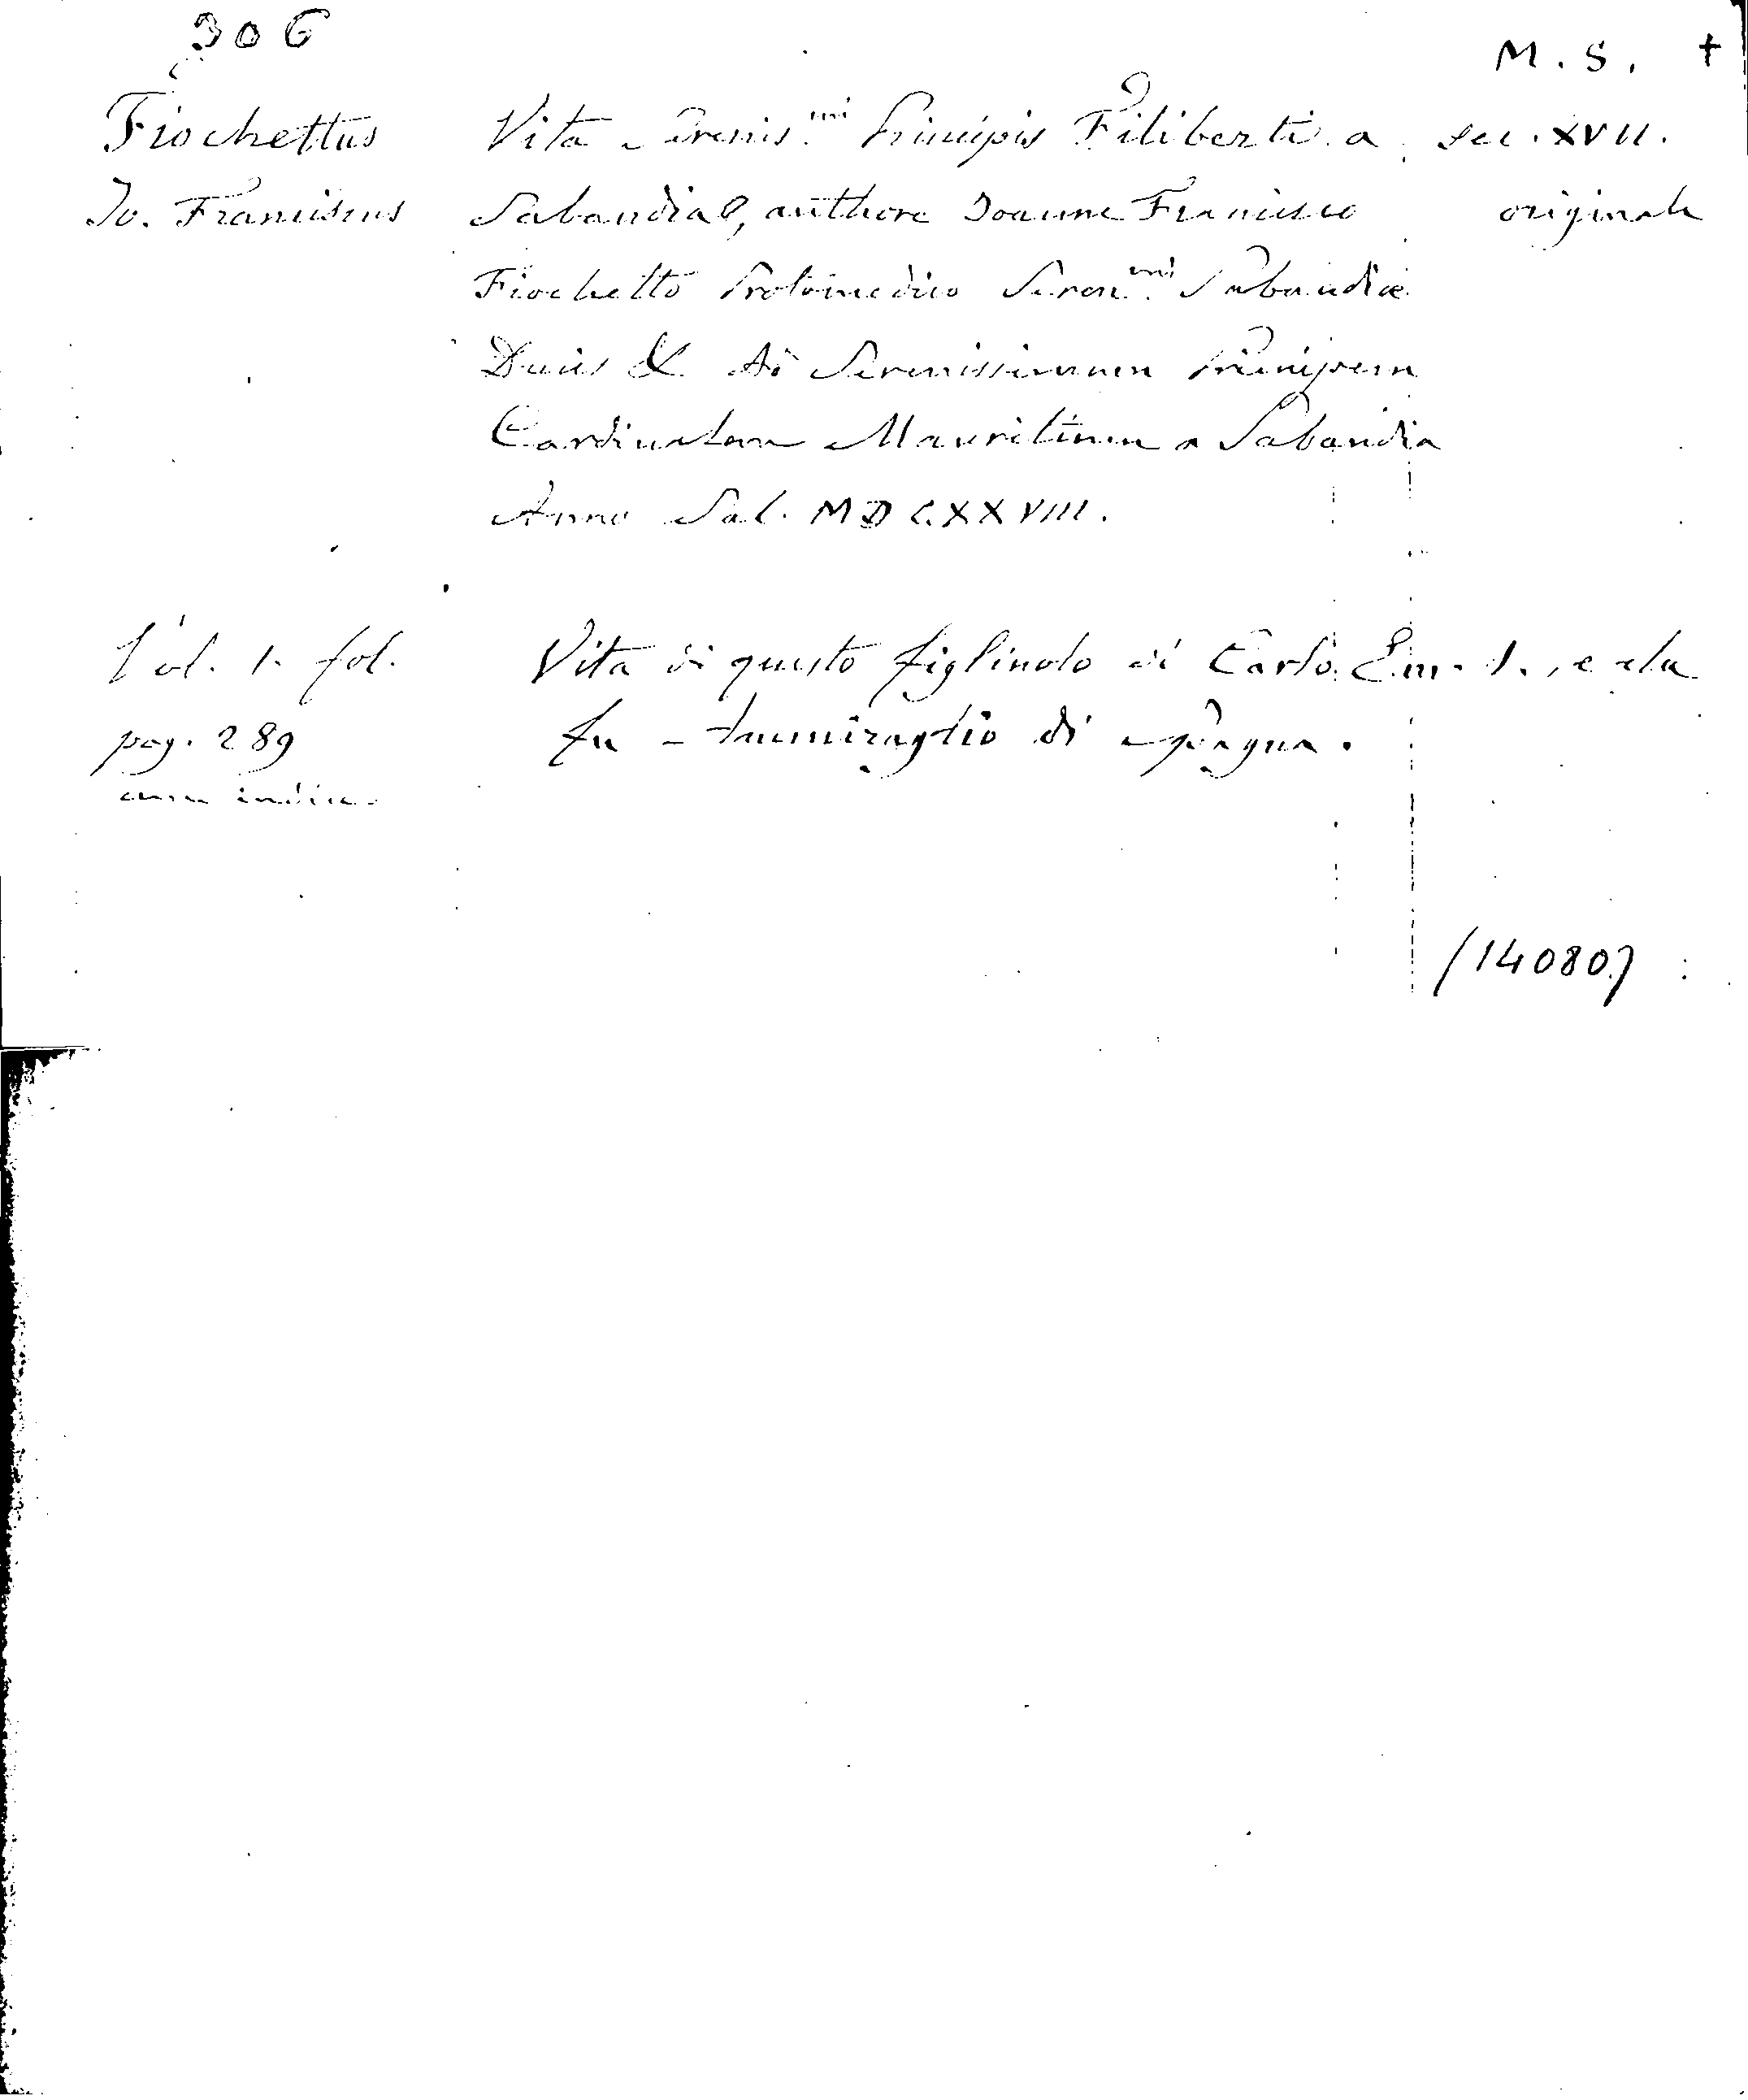 306
M. S. +
Fiochettus
Io. Franciscus
Vita Serenis.mi Principis Filiberti a
Sabaudia, authore Joanne Francisco
Fiochetto Protomedico Seren.mi Sabaudiæ
Ducis &. Ad Serenissimum Principem
Cardinalem Mauritium a Sabaudia
Anno Sal. MDCXXVIII.
sec. XVII.
originale
Vol. 1. fol.
pag. 289
cum indice
Vita di questo figliuolo di Carlo Em. I., e che
fu Ammiraglio di Spagna.
(14080)